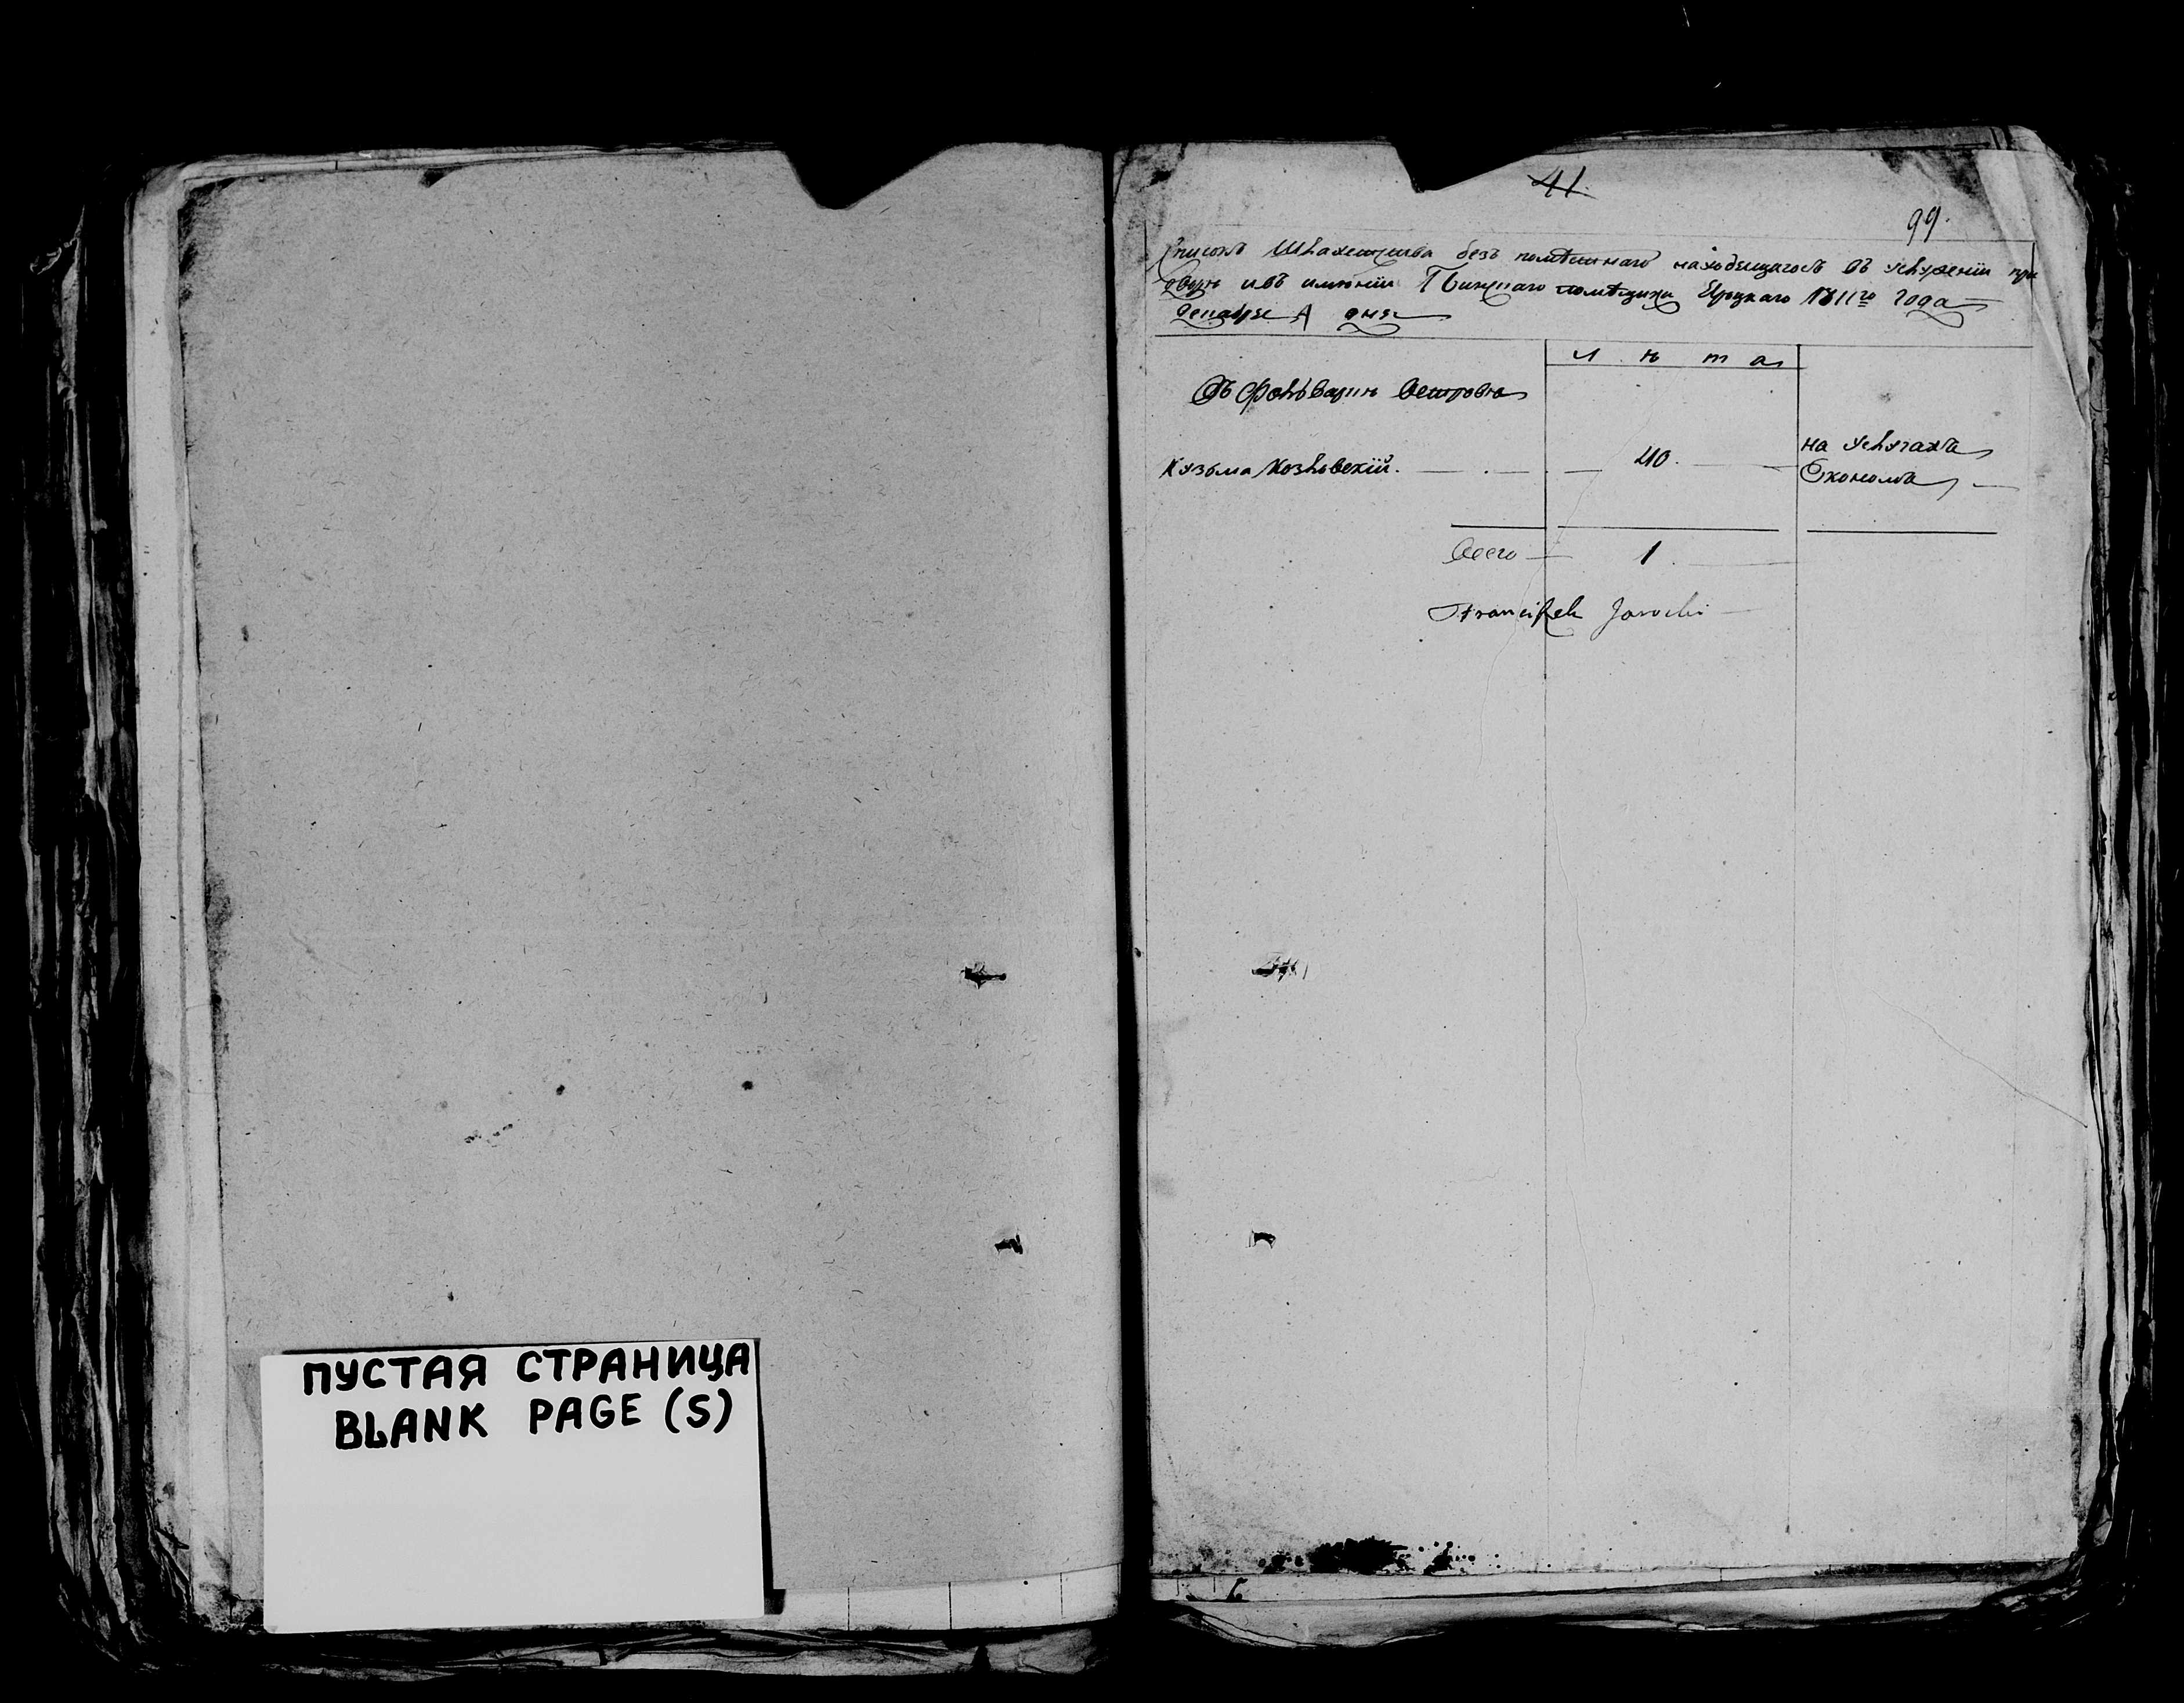 ПУСТАЯ СТРАНИЦА
BLANK PAGE (S)
41.
99.
Списокъ Шляхетства безъ помѣстнаго находещагось въ услуженіи при
дворѣ ивъ имѣніи помѣщика Яроцкаго 1811го Года
Декабря дня
лѣта
Въ Фольваркѣ Островѣ
Кузьма Козловскій. 40. на услугахъ
Экономъ
Всего 1.
Franciszek Jarocki